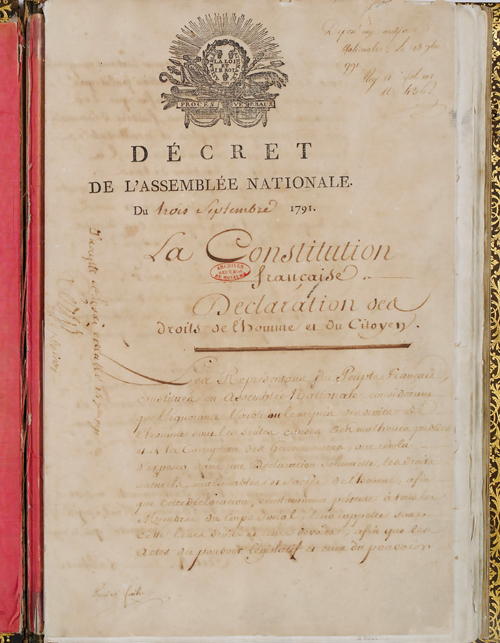 LA LOI
ET
LE ROI
PROCÈS VERBAUX
DÉCRET
DE L'ASSEMBLÉE NATIONALE.
Du trois Septembre 1791.
La Constitution
française
ARCHIVES
Déclaration des
droits de l'homme et du Citoyen.
Les Représentans du Peuple Français,
constitués en Assemblée Nationale, considérant
que l'ignorance, l'oubli ou le mépris des droits de
l'homme sont les seules causes des malheurs publics
et de la Corruption des Gouvernemens, ont résolu
d'exposer dans une Déclaration Solemnelle, les droits
naturels, inaliénables et sacrés de l'homme, afin
que cette déclaration, constamment présente à tous les
Membres du Corps Social, leur rappelle sans
cesse leurs droits et leurs devoirs; afin que les
actes du pouvoir législatif et ceux du pouvoir